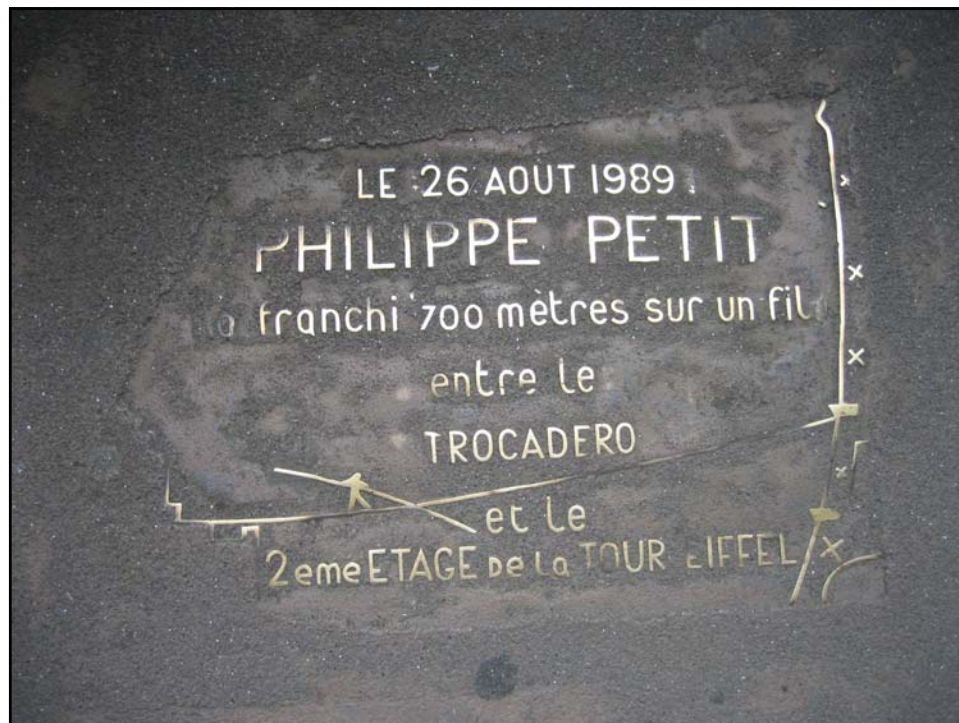 LE 26 AOUT 1989
PHILIPPE PETIT
a franchi 700 mètres sur un fil
entre le
TROCADERO
et le
2eme ETAGE De La TOUR EIFFEL